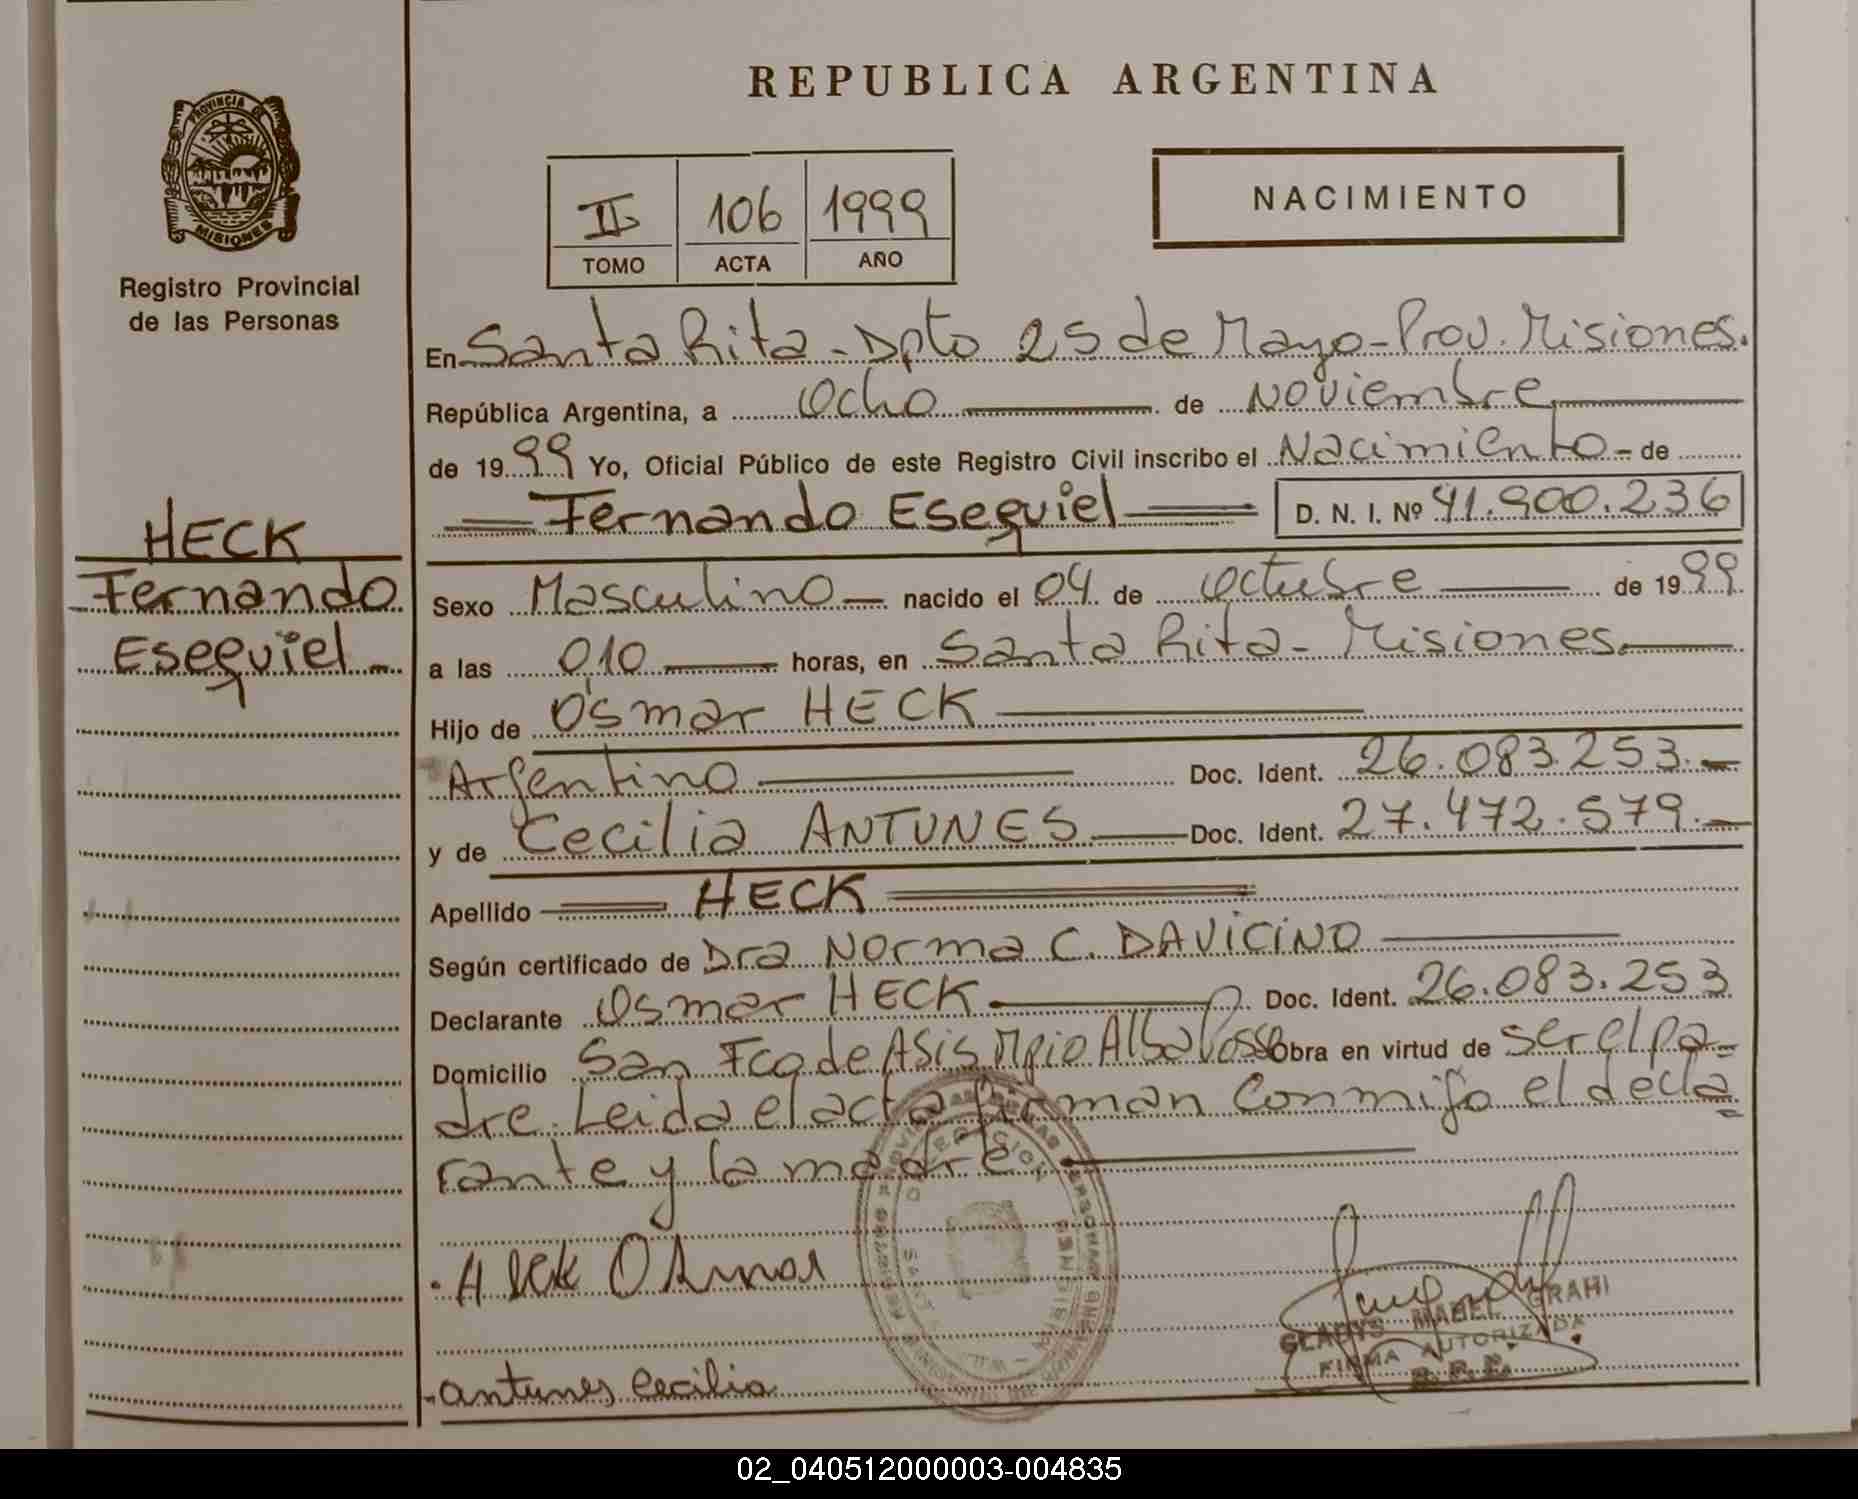 REPUBLICA ARGENTINA
PROVINCIA DE
MISIONES
Registro Provincial
de las Personas
II 106 1999
TOMO ACTA AÑO
NACIMIENTO
En Santa Rita - Dpto 25 de Mayo - Prov. Misiones.
República Argentina, a Ocho de Noviembre
de 1999 Yo, Oficial Público de este Registro Civil inscribo el Nacimiento - de
Fernando Esequiel D. N. I. Nº 41.900.236
HECK
Fernando
Esequiel -
Sexo Masculino - nacido el 04 de Octubre de 1999
a las 0,10 horas, en Santa Rita - Misiones.
Hijo de Osmar HECK
Argentino Doc. Ident. 26.083.253.-
y de Cecilia ANTUNES Doc. Ident. 27.472.579.-
Apellido HECK
Según certificado de Dra Norma C. DAVICINO
Declarante Osmar HECK Doc. Ident. 26.083.253
Domicilio San Fco de Asis Mpio Alba Posse Obra en virtud de ser el pa-
dre. Leida el acta firman conmigo el decla=
rante y la madre.
Heck Osmar
GLADYS MABEL GRAHI
FIRMA AUTORIZADA
R.P.P.
antunes cecilia
02_040512000003-004835